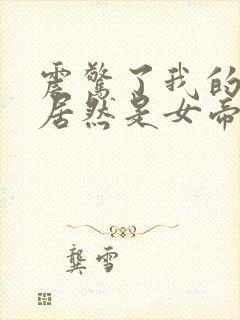 震惊了我的
居然是女帝
龚雪